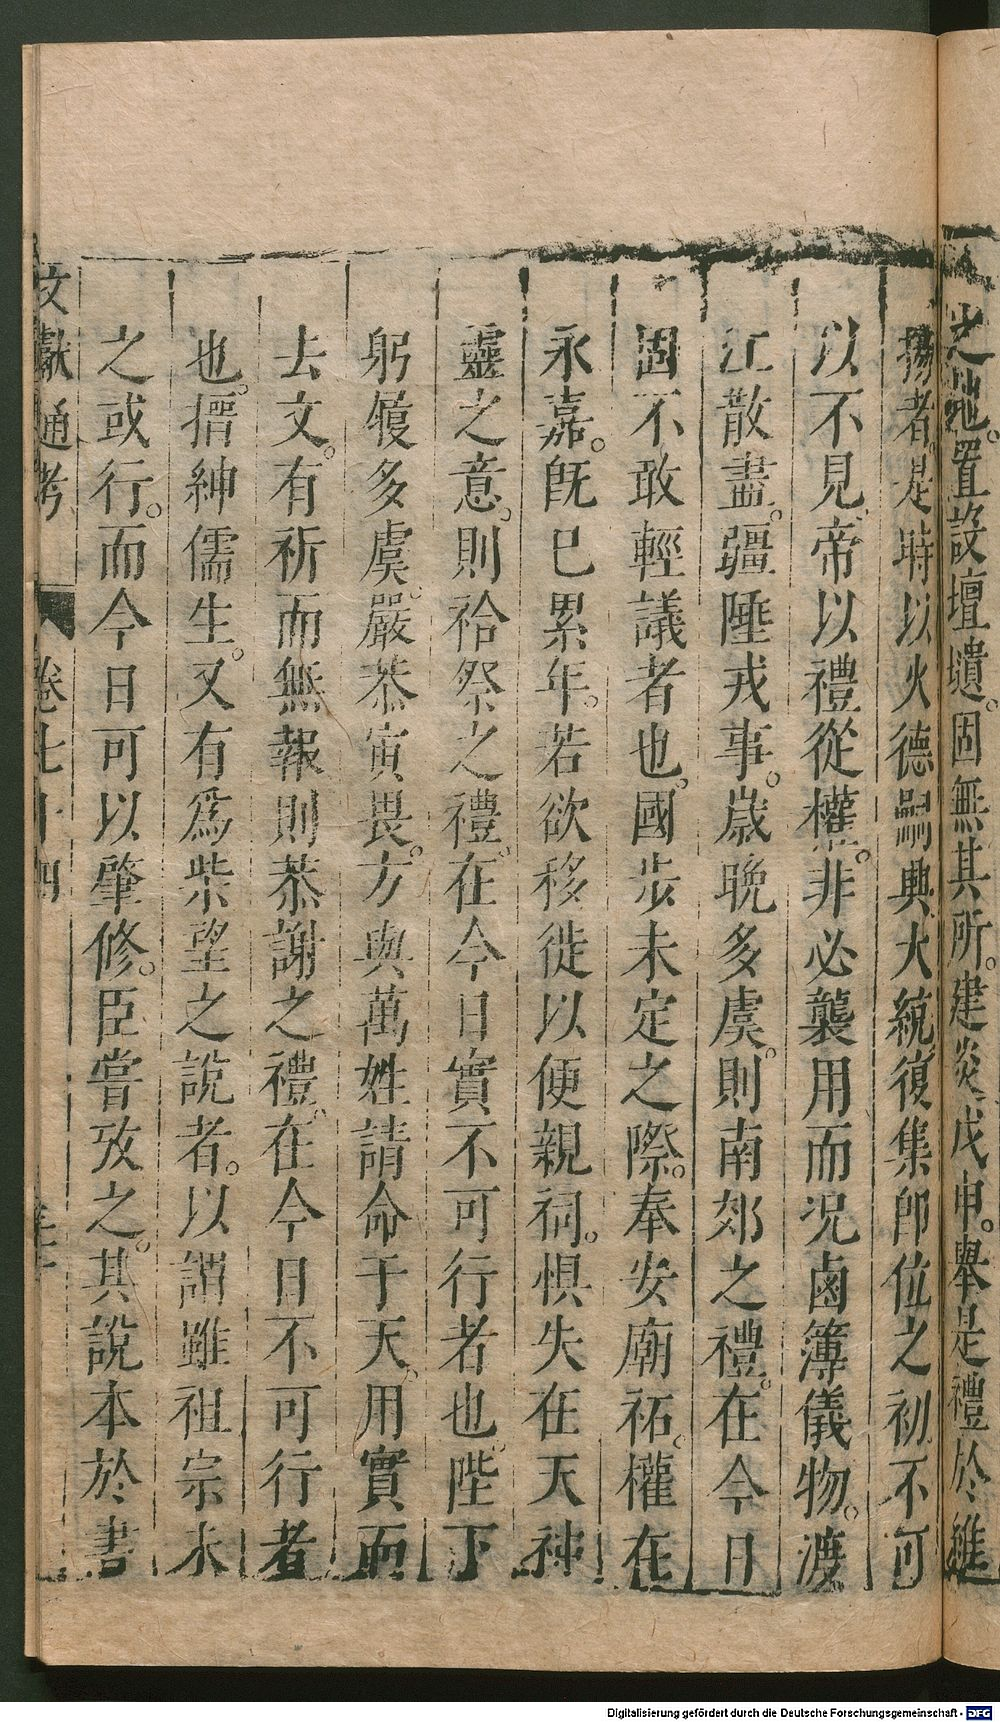 之地。置設壇壝。固無其所。建炎戊申。舉是禮於維
揚者。是時以火德嗣興大統復集即位之初不可
以不見帝以禮從權。非必襲用而况鹵簿儀物。渡
江散盡。疆陲戎事。歲晚多虞。則南郊之禮。在今日
固不敢輕議者也。國步未定之際。奉安廟祏。權在
永嘉。旣已累年。若欲移徙以便親祠。惧失在天神
靈之意。則祫祭之禮。在今日實不可行者也。陛下
躬履多虞。嚴恭寅畏。方與萬姓請命于天。用實而
去文。有祈而無報則恭謝之禮。在今日不可行者
也。搢紳儒生。又有爲柴望之說者。以謂雖祖宗未
之或行。而今日可以肇修。臣嘗攷之。其說本於書
文獻通考 卷七十四
Digitalisierung gefördert durch die Deutsche Forschungsgemeinschaft - DFG